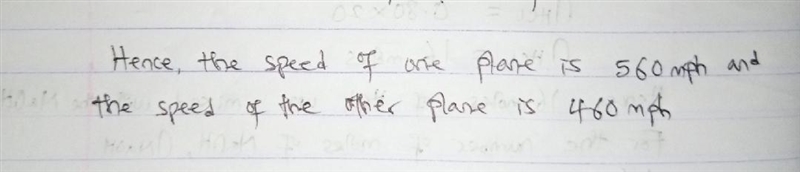 Hence, the speed of one plane is 560 mph and
the speed of the other plane is 460 mph